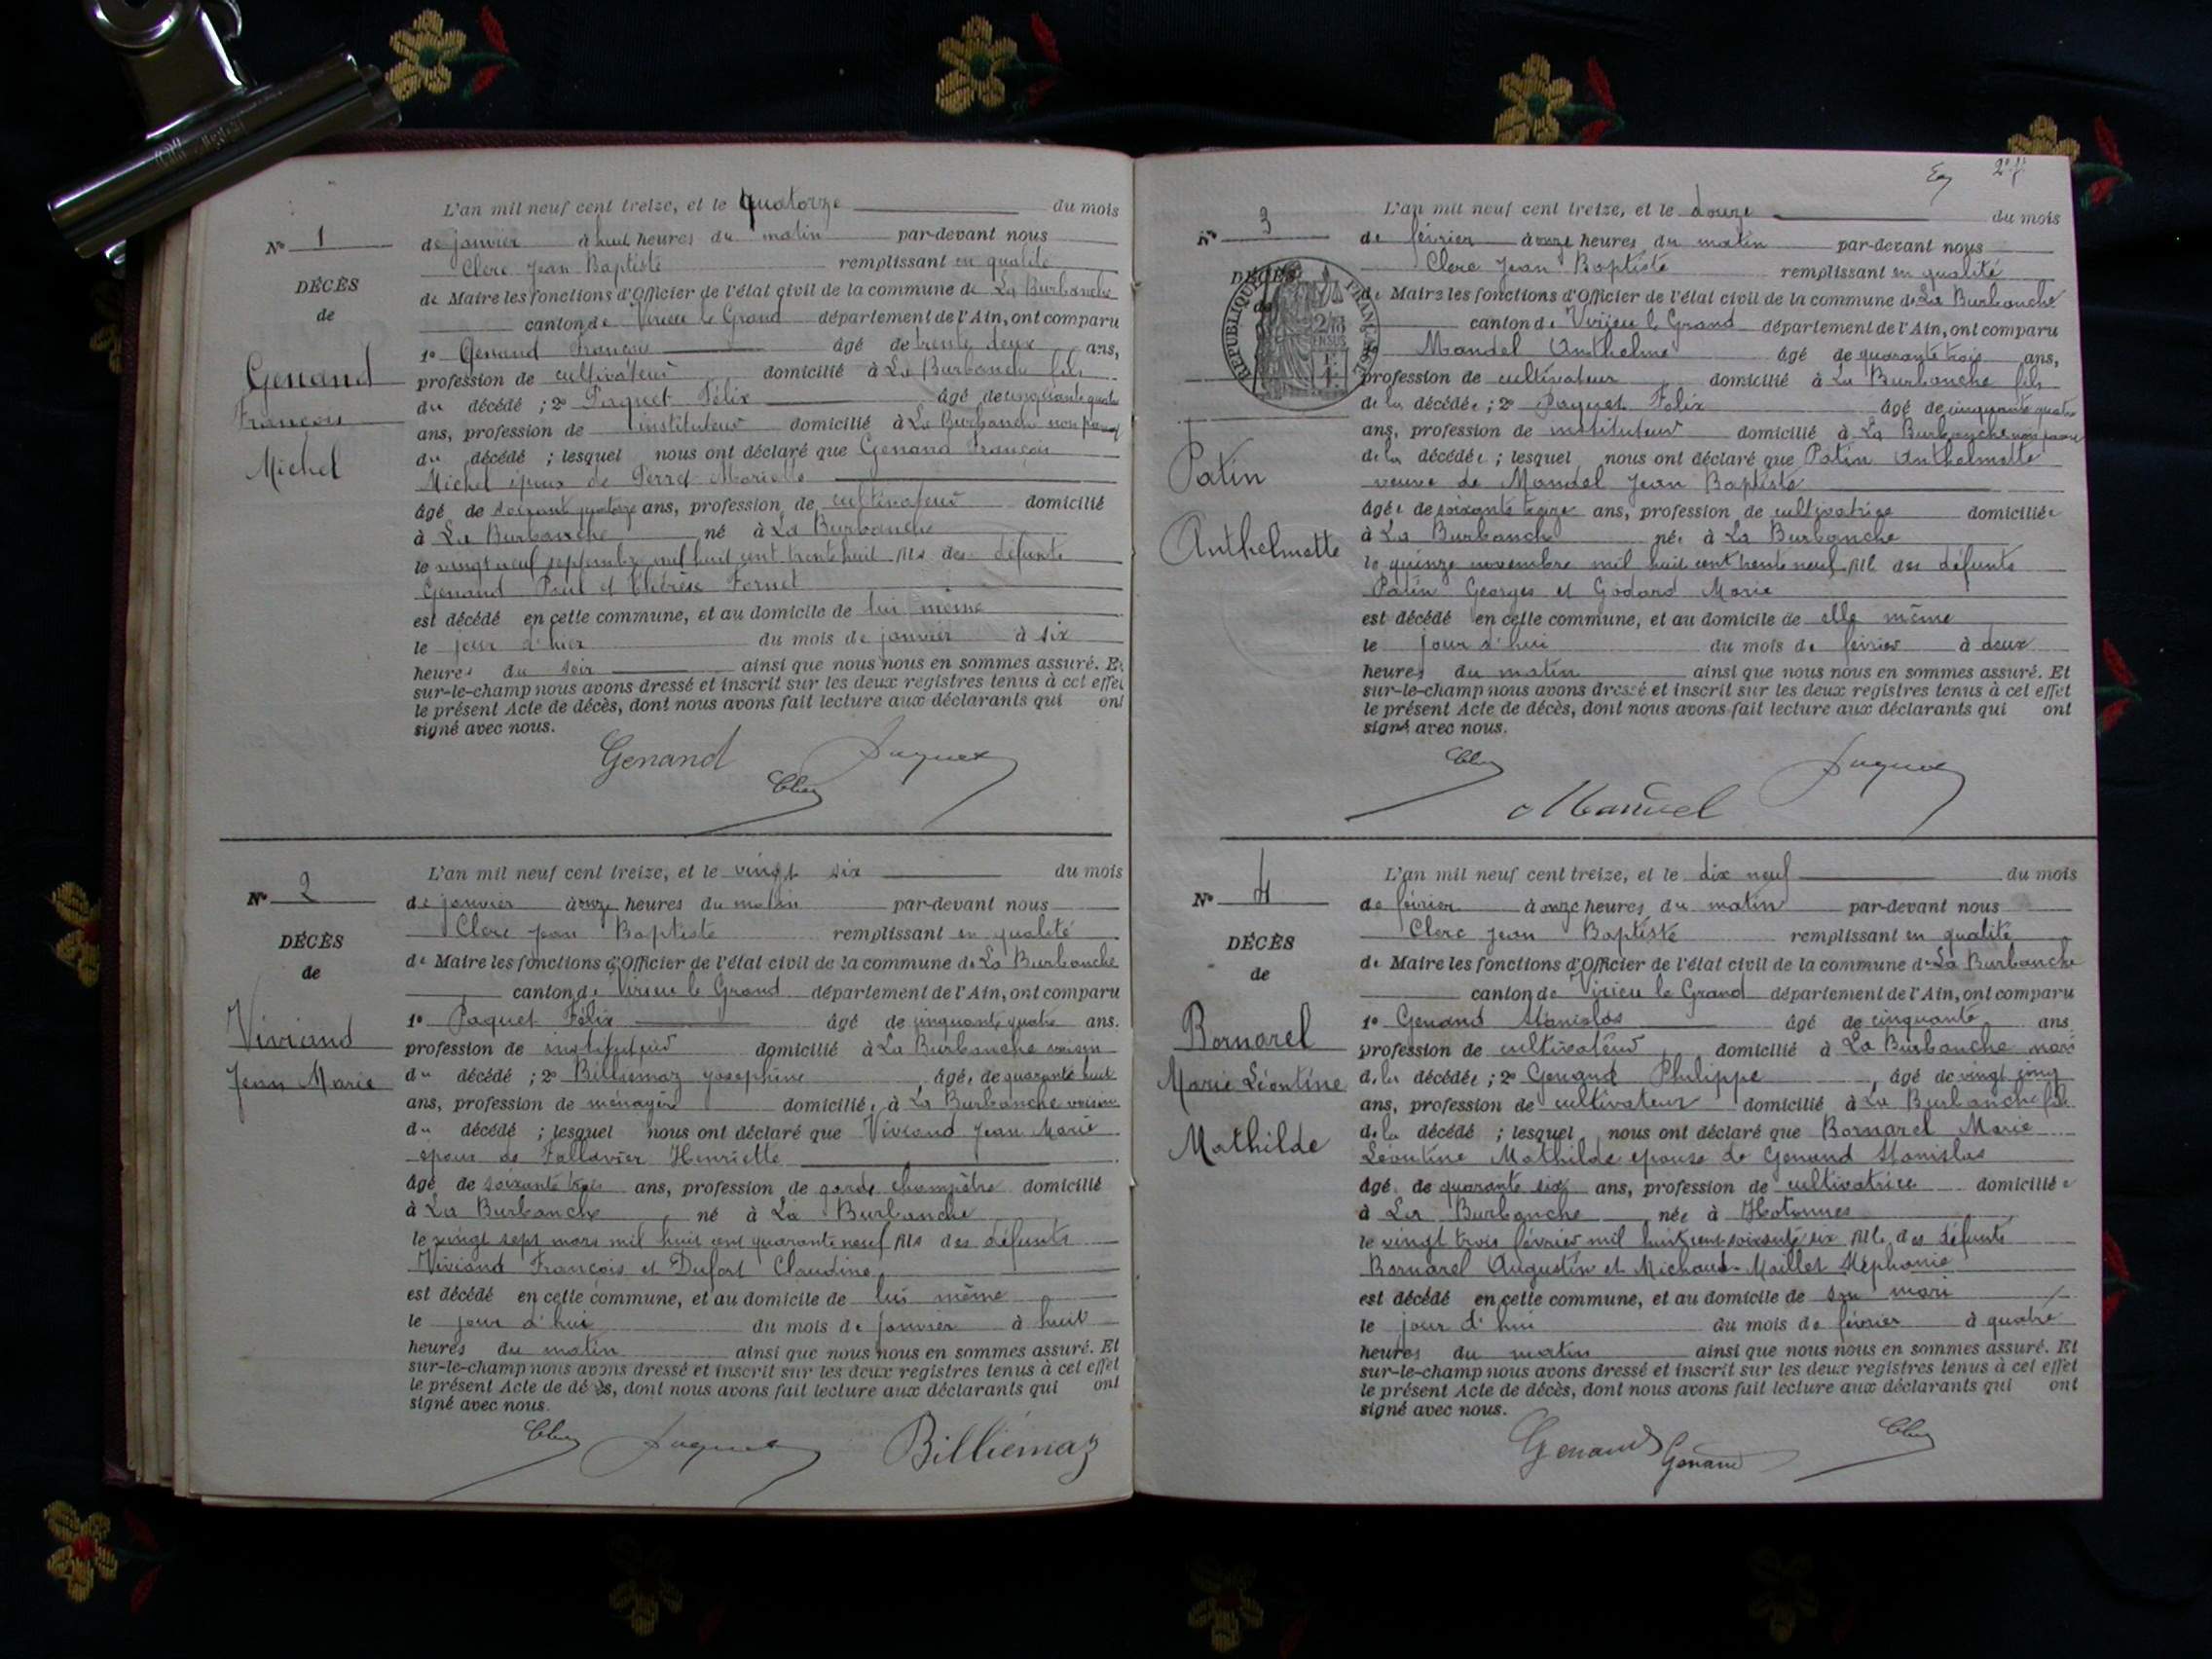 L'an mil neuf cent treize, et le quatorze du mois
N° 1
de janvier à huit heures du matin par-devant nous
Clerc Jean Baptiste remplissant en qualité
DÉCÈS
de Maire les fonctions d'Officier de l'état civil de la commune de La Burbanche
de
canton de Virieu le Grand département de l'Ain, ont comparu
1° Genand François âgé de trente deux ans,
Genand
profession de cultivateur domicilié à La Burbanche fils
du décédé ; 2° Paquet Félix âgé de cinquante quatre
François
ans, profession de instituteur domicilié à La Burbanche non parent
du décédé ; lesquel nous ont déclaré que Genand François
Michel
Michel époux de Perret Mariette
âgé de soixante quatorze ans, profession de cultivateur domicilié
à La Burbanche né à La Burbanche
le vingt neuf septembre mil huit cent trente huit fils des défunts
Genand Paul et Thérèse Fornet
est décédé en cette commune, et au domicile de lui même
le jour d'hier du mois de janvier à six
heures du soir ainsi que nous nous en sommes assuré. Et
sur-le-champ nous avons dressé et inscrit sur les deux registres tenus à cet effet
le présent Acte de décès, dont nous avons fait lecture aux déclarants qui ont
signé avec nous.
Genand Paquet
Clerc
L'an mil neuf cent treize, et le vingt six du mois
N° 2
de janvier à onze heures du matin par-devant nous
Clerc Jean Baptiste remplissant en qualité
DÉCÈS
de Maire les fonctions d'Officier de l'état civil de la commune de La Burbanche
de
canton de Virieu le Grand département de l'Ain, ont comparu
1° Paquet Félix âgé de cinquante quatre ans.
Viviand
profession de instituteur domicilié à La Burbanche voisin
du décédé ; 2° Billiemaz Josephine , âgée de quarante huit
Jean Marie
ans, profession de ménagère domiciliée à La Burbanche voisine
du décédé ; lesquel nous ont déclaré que Viviand Jean Marie
époux de Fallavier Henriette
âgé de soixante trois ans, profession de garde champêtre domicilié
à La Burbanche né à La Burbanche
le vingt sept mars mil huit cent quarante neuf fils des défunts
Viviand François et Dufort Claudine
est décédé en cette commune, et au domicile de lui même
le jour d'hui du mois de janvier à huit
heures du matin ainsi que nous nous en sommes assuré. Et
sur-le-champ nous avons dressé et inscrit sur les deux registres tenus à cet effet
le présent Acte de décès, dont nous avons fait lecture aux déclarants qui ont
signé avec nous.
Clerc Paquet Billiemaz
L'an mil neuf cent treize, et le douze du mois
N° 3
de février à onze heures du matin par-devant nous
Clerc Jean Baptiste remplissant en qualité
DÉCÈS
de Maire les fonctions d'Officier de l'état civil de la commune de La Burbanche
de
REPUBLIQUE FRANÇAISE
canton de Virieu le Grand département de l'Ain, ont comparu
Mandel Anthelme âgé de quarante trois ans,
profession de cultivateur domicilié à La Burbanche fils
de la décédée ; 2° Paquet Félix âgé de cinquante quatre
ans, profession de instituteur domicilié à La Burbanche non parent
Patin
de la décédée ; lesquel nous ont déclaré que Patin Anthelmette
veuve de Mandel Jean Baptiste
âgée de soixante treize ans, profession de cultivatrice domiciliée
Anthelmette
à La Burbanche née à La Burbanche
le quinze novembre mil huit cent trente neuf fille des défunts
Patin Georges et Godard Marie
est décédé en cette commune, et au domicile de elle même
le jour d'hui du mois de février à deux
heures du matin ainsi que nous nous en sommes assuré. Et
sur-le-champ nous avons dressé et inscrit sur les deux registres tenus à cet effet
le présent Acte de décès, dont nous avons fait lecture aux déclarants qui ont
signé avec nous.
Clerc Paquet
Mandel
L'an mil neuf cent treize, et le dix neuf du mois
N° 4
de février à onze heures du matin par-devant nous
Clerc Jean Baptiste remplissant en qualité
DÉCÈS
de Maire les fonctions d'Officier de l'état civil de la commune de La Burbanche
de
canton de Virieu le Grand département de l'Ain, ont comparu
1° Genand Stanislas âgé de cinquante ans
Bornarel
profession de cultivateur domicilié à La Burbanche mari
Marie Léontine
de la décédée ; 2° Genand Philippe , âgé de vingt cinq
ans, profession de cultivateur domicilié à La Burbanche fils
Mathilde
de la décédé ; lesquel nous ont déclaré que Bornarel Marie
Léontine Mathilde épouse de Genand Stanislas
âgé de quarante six ans, profession de cultivatrice domiciliée
à La Burbanche née à Hotonnes
le vingt trois février mil huit cent soixante six fille des défunts
Bornarel Augustin et Michaud-Maillet Stéphanie
est décédé en cette commune, et au domicile de son mari
le jour d'hui du mois de février à quatre
heures du matin ainsi que nous nous en sommes assuré. Et
sur-le-champ nous avons dressé et inscrit sur les deux registres tenus à cet effet
le présent Acte de décès, dont nous avons fait lecture aux déclarants qui ont
signé avec nous.
Genand Genand Clerc